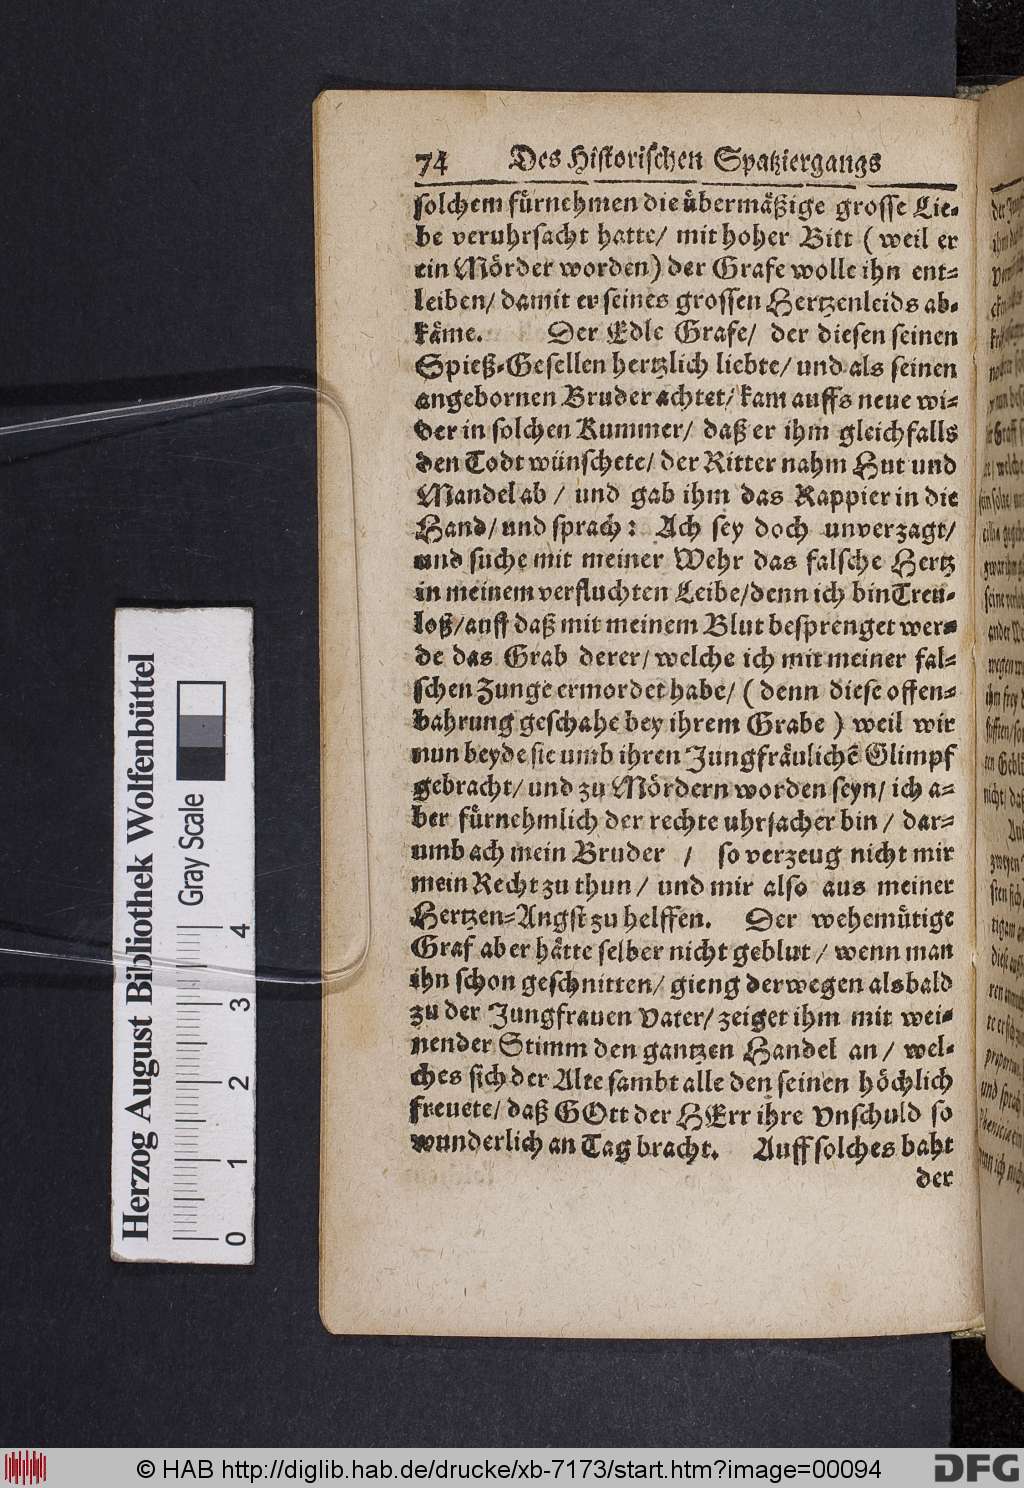 74 Des Historischen Spatziergangs
solchem fürnehmen die übermäßige grosse Lie-
be veruhrsacht hatte/ mit hoher Bitt (weil er
ein Mörder worden) der Grafe wolle ihn ent-
leiben/ damit er seines grossen Hertzenleids ab-
käme. Der Edle Grafe/ der diesen seinen
Spieß-Gesellen hertzlich liebte/ und als seinen
angebornen Bruder achtet/ kam auffs neue wi-
der in solchen Kummer/ daß er ihm gleichfalls
den Todt wünschete/ der Ritter nahm Hut und
Mandel ab / und gab ihm das Rappier in die
Hand/ und sprach: Ach sey doch unverzagt/
und suche mit meiner Wehr das falsche Hertz
in meinem verfluchten Leibe/ denn ich bin Treu-
loß/ auff daß mit meinem Blut besprenget wer-
de das Grab derer/ welche ich mit meiner fal-
schen Zunge ermordet habe/ (denn diese offen-
bahrung geschahe bey ihrem Grabe) weil wir
nun beyde sie umb ihren Jungfräulichẽ Glimpf
gebracht/ und zu Mördern worden seyn/ ich a-
ber fürnehmlich der rechte uhrsacher bin / dar-
umb ach mein Bruder / so verzeug nicht mir
mein Recht zu thun / und mir also aus meiner
Hertzen-Angst zu helffen. Der wehemütige
Graf aber hätte selber nicht geblut / wenn man
ihn schon geschnitten/ gieng derwegen alsbald
zu der Jungfrauen Vater/ zeiget ihm mit wei-
nender Stimm den gantzen Handel an / wel-
ches sich der Alte sambt alle den seinen höchlich
freuete/ daß GOtt der HErr ihre Vnschuld so
wunderlich an Tag bracht. Auff solches baht
der
Herzog August Bibliothek Wolfenbüttel
Gray Scale
0 1 2 3 4
© HAB http://diglib.hab.de/drucke/xb-7173/start.htm?image=00094
DFG